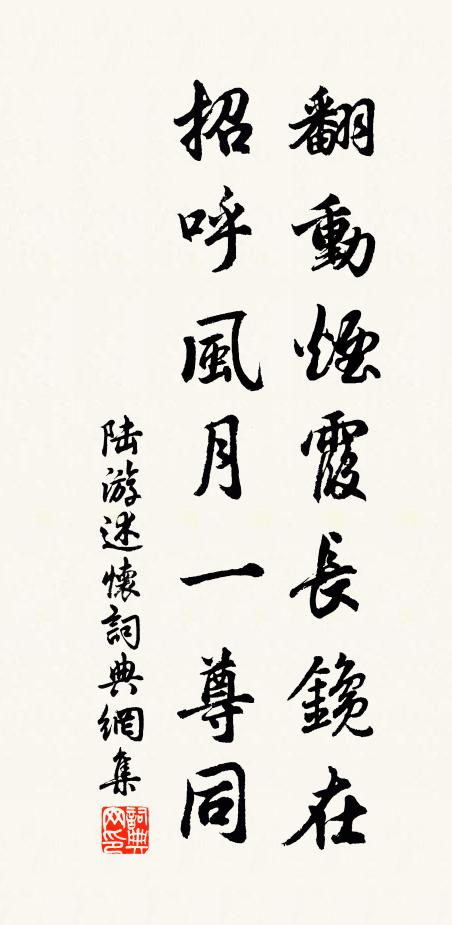 翻動煙霞長鑱在
招呼風月一尊同
陆游述懷詞典網集
詞典
网印